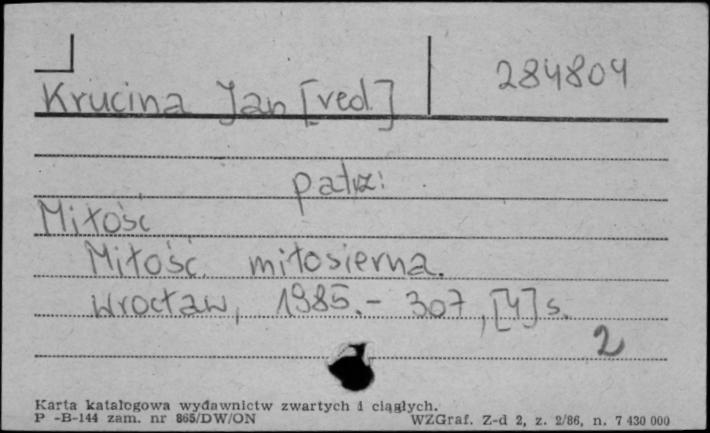 284804
Krucina Jan [red.]
patrz:
Miłość
Miłość miłosierna.
Wrocław, 1985.- 307, [4] s.
2
Karta katalogowa wydawnictw zwartych i ciągłych.
P -B-144 zam. nr 865/DW/ON WZGraf. Z-d 2, z. 2/86, n. 7 430 000